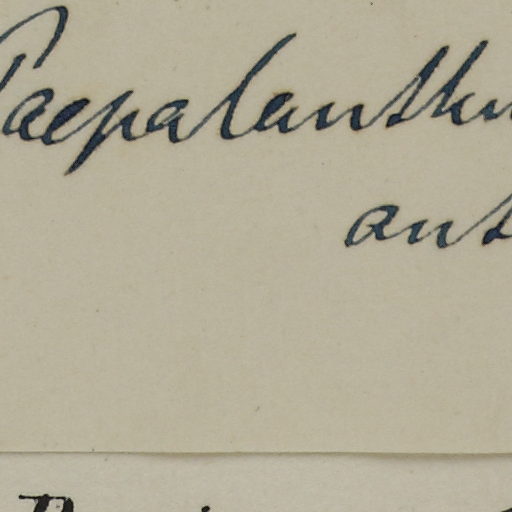 Paepalanthu
ant